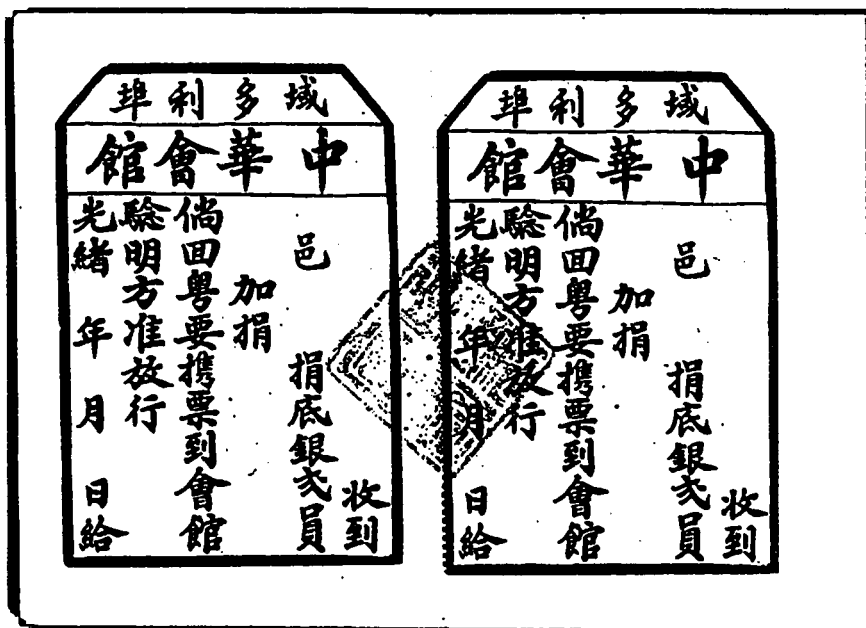 域多利埠
中華會館
收到
邑 捐底銀弍員
加捐
倘回粵要携票到會館
驗明方准放行
光緒 年 月 日給
域多利埠
中華會館
收到
邑 捐底銀弍員
加捐
倘回粵要携票到會館
驗明方准放行
光緒 年 月 日給